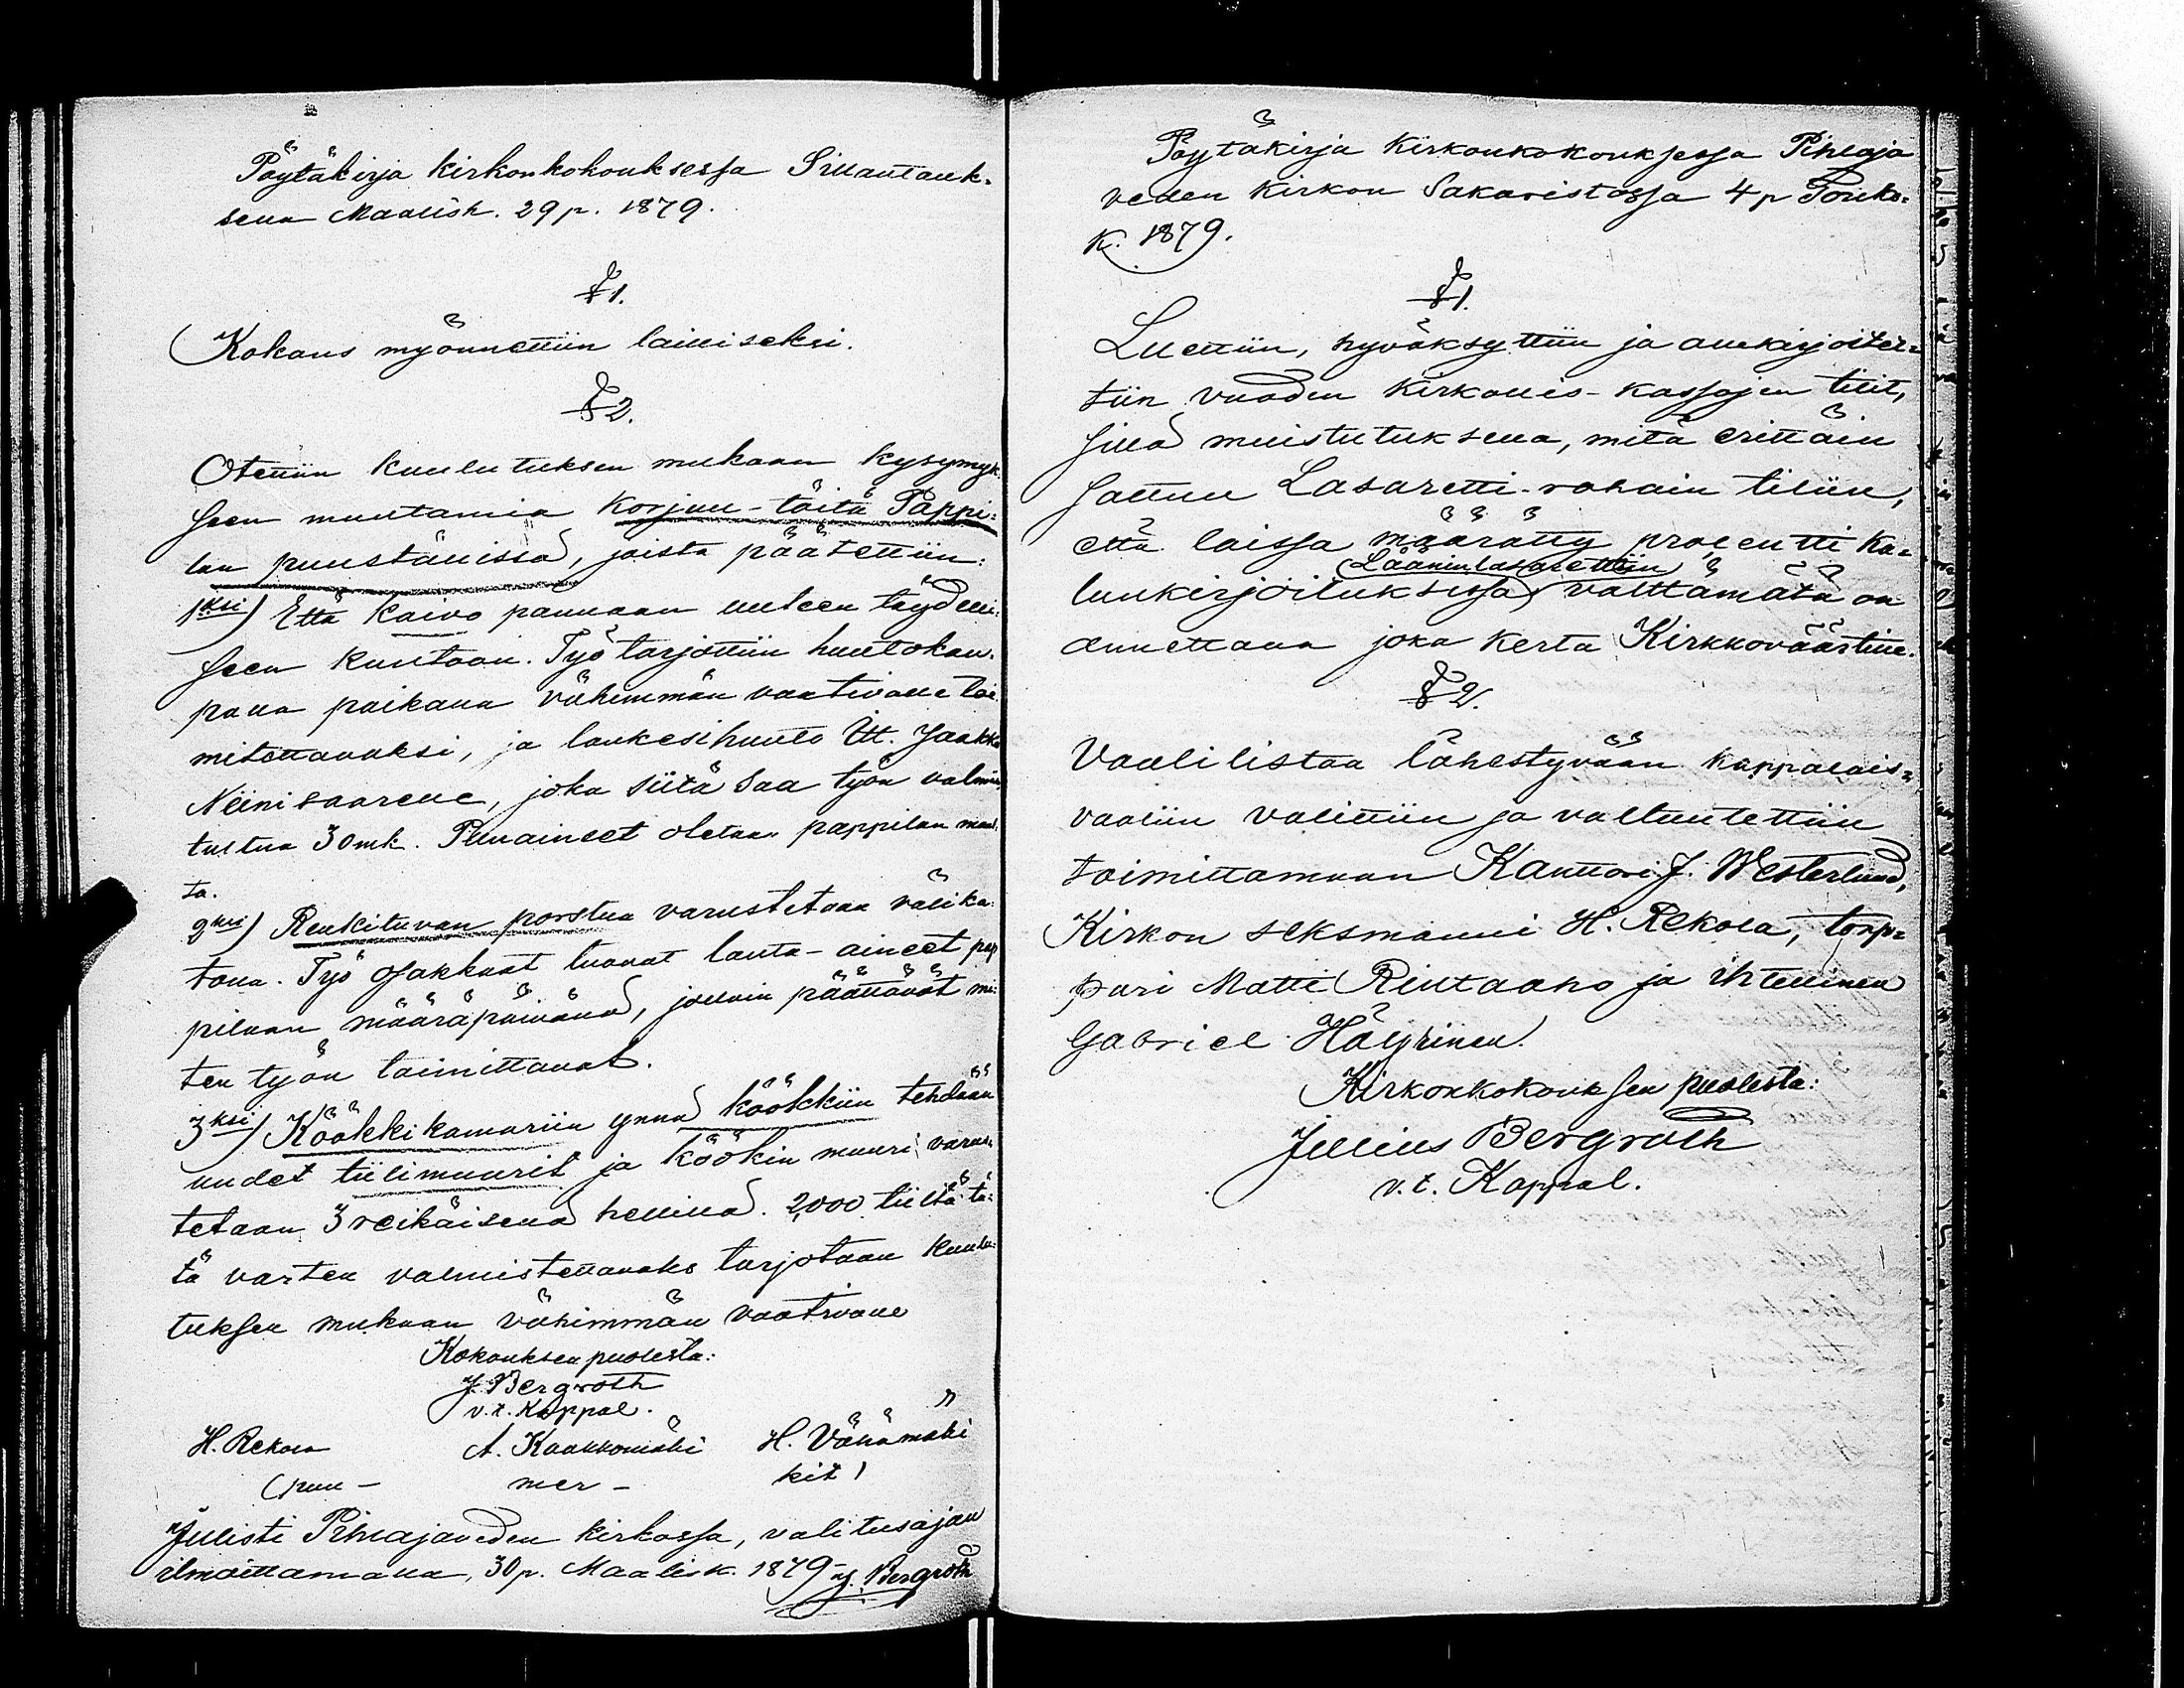 Pöytäkirja kirkonkokouksessa Sillantauk-
sella Maalisk. 29 p. 1879.
§ 1.
Kokous myönnettiin lailliseksi.
§ 2.
Otettiin kuulutuksen mukaan kysymyk-
seen muutamia korjuu-töitä Pappi-
lan puustellissa, joista päätettiin:
1ksi) Että Kaivo pannaan uuteen täydelli-
seen kuntoon. Työ tarjottiin huutokau-
palla paikalla vähimmän vaativalle toi-
mitettavaksi, ja laukesi huuto Itt. Jaakko
Niinisaarelle, joka siitä saa työn valmis-
tultua 30 mk. Puuaineet otetaan pappilan maal-
ta.
2ksi) Renkituvan porstua varustetaan välika-
tolla. Työ osakkaat tuovat lauta-aineet pap-
pilaan määräpäivänä, jolloin päättävät mi-
ten työn toimittavat.
3ksi) Köökkikamariin ynnä köökkiin tehdään
uudet tiilimuurit ja köökin muuri varus-
tetaan 3 reikäisellä hellillä. 2,000 tiiltä tä-
tä varten valmistettavaks tarjotaan kuulu-
tuksen mukaan vähimmän vaativalle
Kokouksen puolesta:
J. Bergroth
v.t. Kappal.
H. Rekola A. Kaakkomäki H. Vähämäki
(puu- mer- kit)
Julisti Pihlajaveden kirkossa, valitusajan
ilmoittamalla, 30 p. Maalisk. 1879 J. Bergroth
Pöytäkirja Kirkonkokouksessa Pihlaja
veden Kirkon Sakaristossa 4 p Touko-
k. 1879.
§ 1.
Luettiin, hyväksyttiin ja allekirjoitet-
tiin vuoden Kirkollis-kassojen tilit,
sillä muistutuksella, mitä erittäin
sattuu Lasaretti-rahain tiliin,
että laissa määrätty procentti ha-
Lääninlasarettiin
lunkirjoituksissa välttämätä on
annettava joka kerta Kirkkoväärtille.
§ 2.
Vaalilistaa lähestyvään kappalais-
vaaliin valittiin ja valtuutettiin
toimittamaan Kanttori J. Westerlund,
Kirkon seksmanni H. Rekola, torp-
pari Matti Rintaaho ja ihtellinen
Gabriel Häyrinen.
Kirkonkokouksen puolesta:
Julius Bergroth
v.t. Kappal.